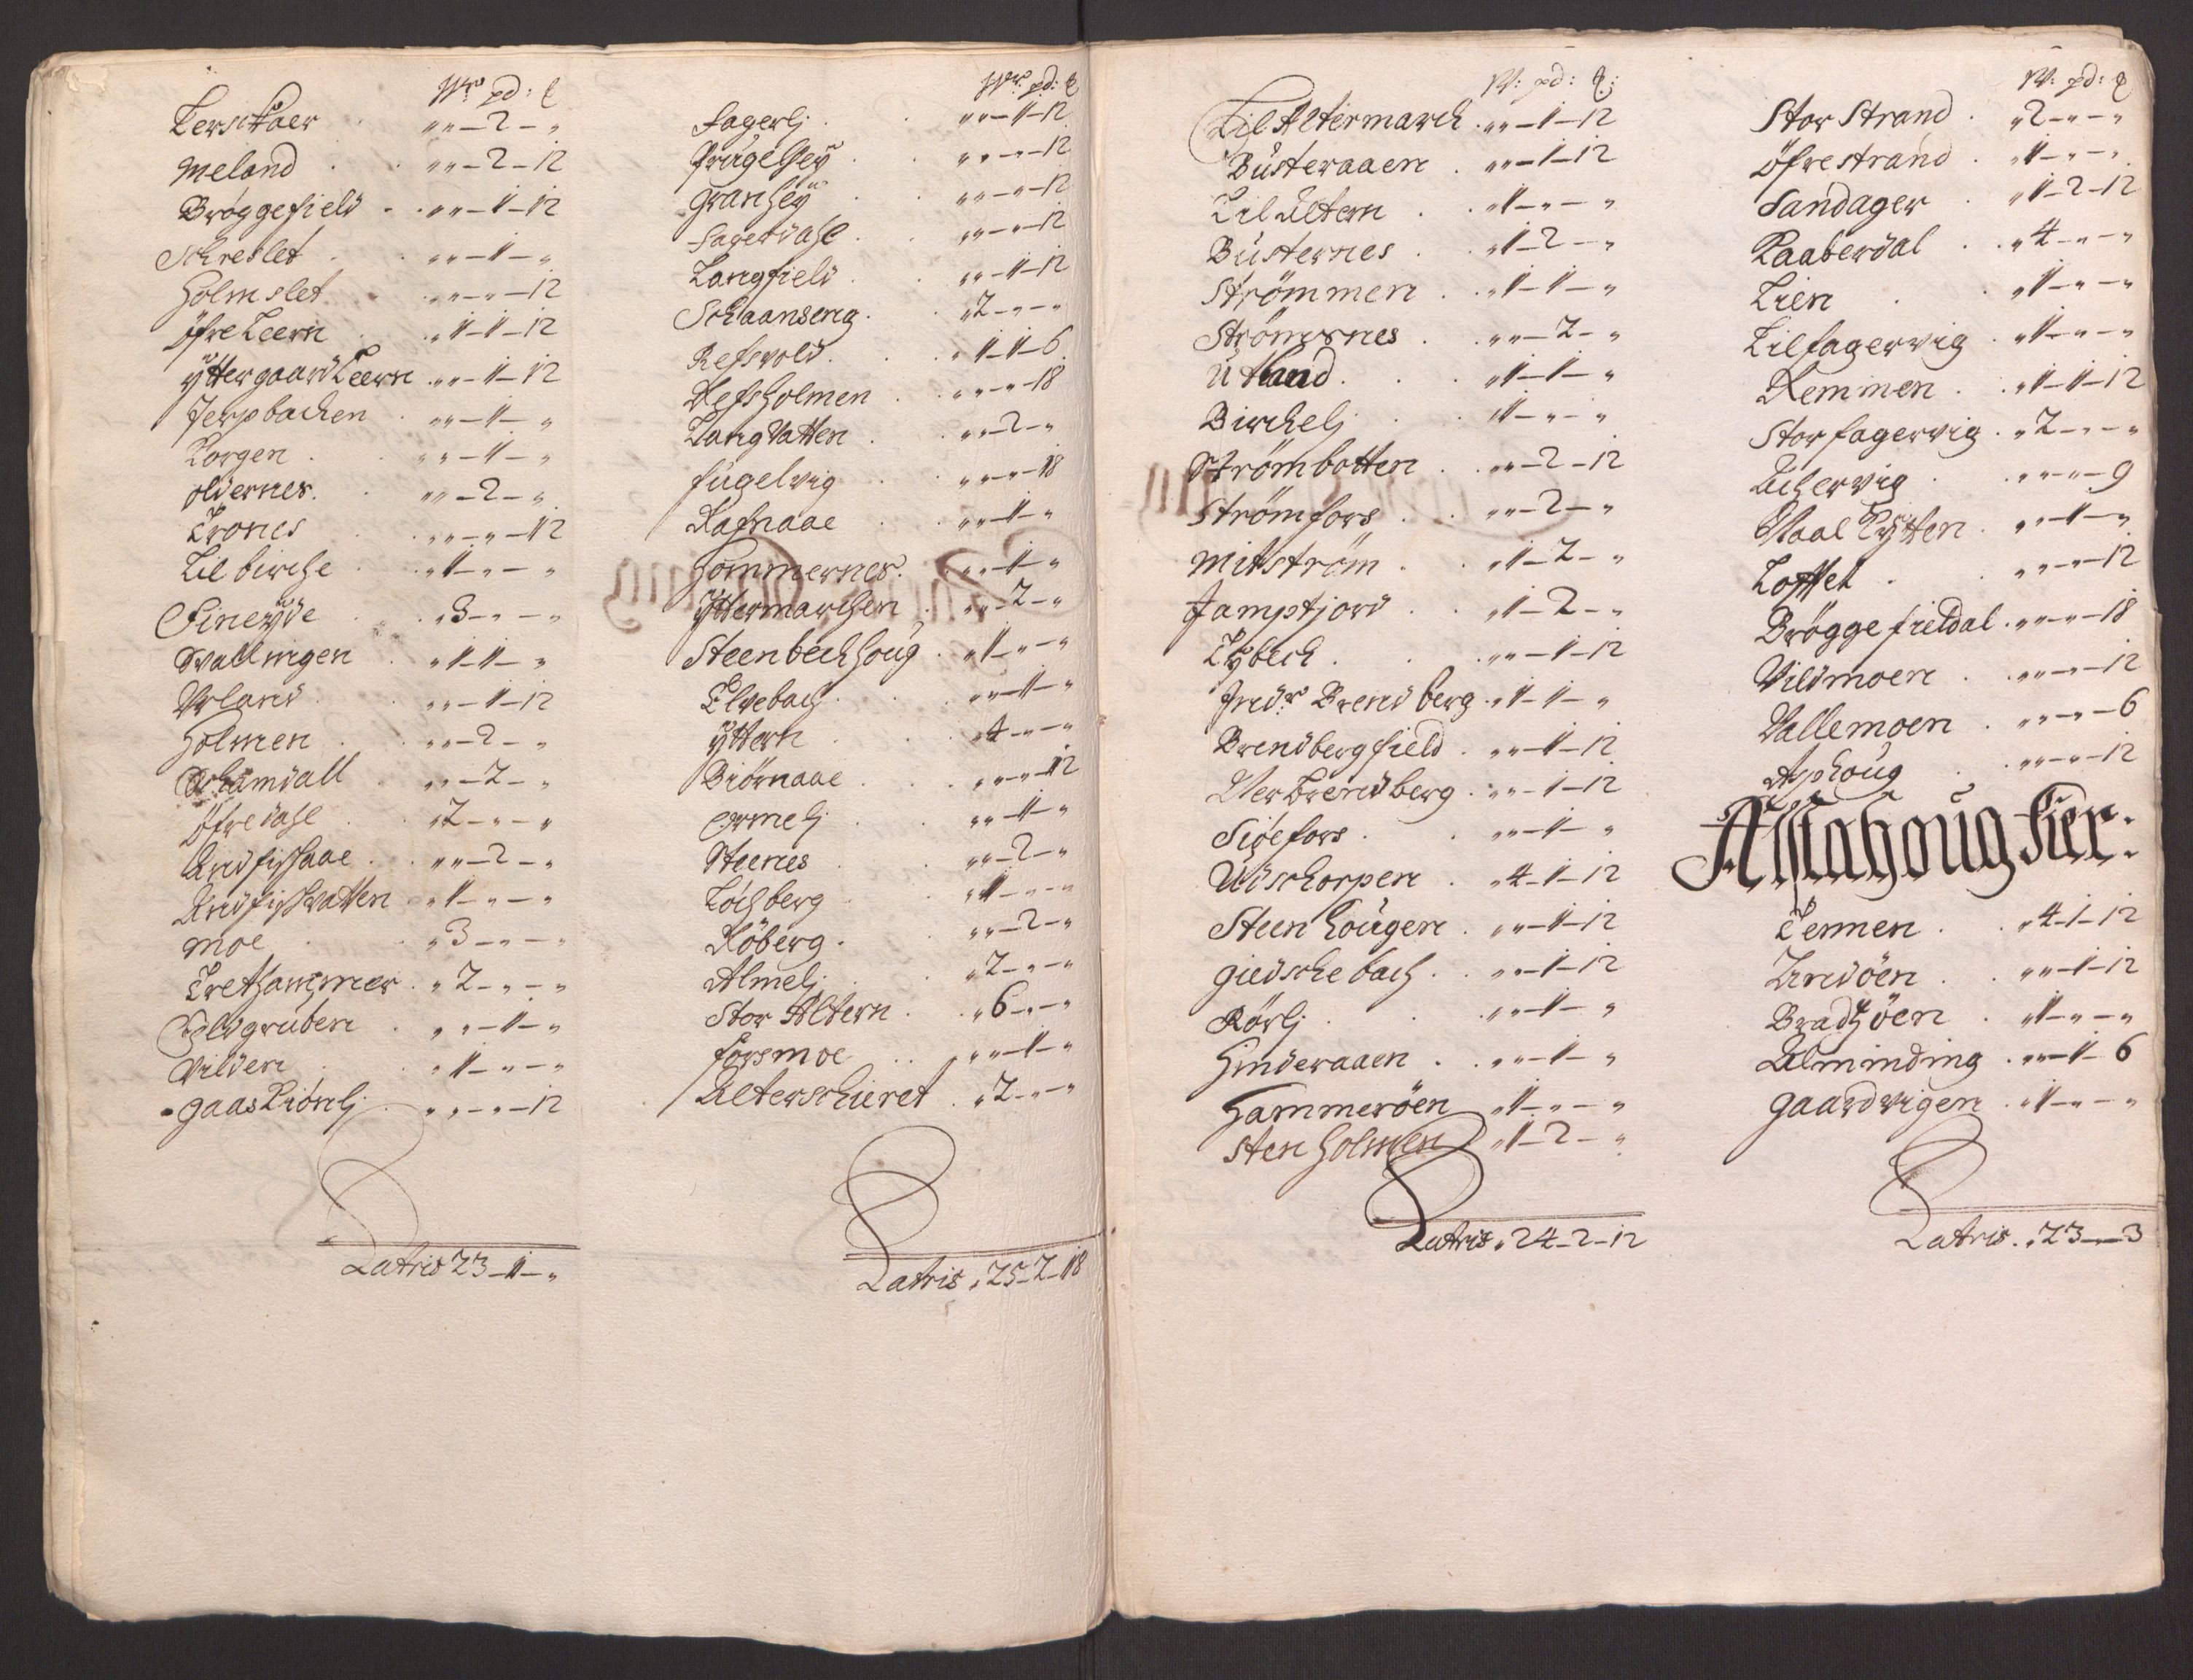 Wr: pd: ℔
Lerschaer . „ „ – 2 – „
Meland . . „ „ – 2 – 12
Bröggefield . . „ „ – 1 – 12
Schreslet . . „ „ – 1 – „
Holmslet . . „ „ – „ – 12
Öfre Leern . . „ 1 – 1 – 12
ÿttergaard Leern . „ „ – 1 – 12
Jerpbachen . „ „ – 1 – „
Korgen . . „ „ – 1 – „
Oldernes . . „ „ – 2 – „
Trones . . „ „ – „ – 12
Lil birche . . „ 1 – „ – „
Fineÿde . . „ 3 – „ – „
Svallnigen . „ 1 – 1 – „
Urland . . „ „ – 1 – 12
Holmen . . „ „ – 2 – „
Schamdall . „ „ – 2 – „
Öfredahl . . „ 2 – „ – „
Andfishaae . . „ „ – 2 – „
Andfishvatten . „ 1 – „ – „
Moe . . „ 3 – „ – „
Trethammer . „ 2 – „ – „
Sÿldgruben . „ „ – 1 – „
Vilden . . „ 1 – „ – „
Gaaskiönlj . „ „ – „ – 12
Latris 23 – 1 – „
Wr: pd: ℔
Fagerlj . . „ „ – 1 – 12
Frugelheÿ . . „ „ – „ – 12
Granheÿ . . „ „ – „ – 12
Fagerdahl . . „ „ – „ – 12
Langfield . . „ „ – 1 – 12
Schaanseng . . „ 2 – „ – „
Refsvold . . „ 1 – 1 – 6
Refsholmen . . „ „ – „ – 18
Langvatten . . „ „ – 2 – „
Fugelvig . . „ „ – „ – 18
Rafnaae . . „ „ – 1 – „
Hommernes . . „ „ – 1 – „
Ÿttermarchen . „ „ – 2 – „
Steenbechhoug . „ 1 – „ – „
Elvebach . . „ „ – 1 – „
Ÿttern . . „ 4 – „ – „
Biörnaae . . „ „ – „ – 12
Ormelj . . „ „ – 1 – „
Steenes . . „ „ – 2 – „
Löchberg . . „ 1 – „ – „
Röberg . . „ „ – 2 – „
Almelj . . „ 2 – „ – „
Stor Altern . . „ 6 – „ – „
Forsmoe . . „ „ – 1 – „
Alterschieret . „ 2 – „ – „
Latris . 25 – 2 – 18
W: pd: ℔:
Lil Altermarch . „ „ – 1 – 12
Busteraaen . „ „ – 1 – 12
Lil Altern . . „ 1 – „ – „
Busternes . . „ 1 – 2 – „
Strömmen . . „ 1 – 1 – „
Strömsnes . . „ „ – 2 – „
Utland . . „ 1 – 1 – „
Birchelj . . „ 1 – „ – „
Strömbotten . „ „ – 2 – 12
Strömfors . . „ „ – 2 – „
Mitström . . „ 1 – 2 – „
Jamptjord . . „ 1 – 2 – „
Lÿbech . . „ „ – 1 – 12
Indr. Brendberg . „ 1 – 1 – „
Brendbergfield . „ „ – 1 – 12
Uer Brendberg . „ „ – 1 – 12
Siöefors . . „ „ – 1 – „
Udschorpen . „ 4 – 1 – 12
Steenhougen . „ „ – 1 – 12
Giedschebach . . „ „ – 1 – 12
Rörlj . . „ „ – 1 – „
Hinderaaen . . „ „ – 1 – „
Hammeröen . „ 1 – „ – „
Stenholmen . „ 1 – 2 – „
Latris . 24 – 2 – 12
W: pd: ℔
Stor Strand . „ 2 – „ – „
Öfrestrand . „ 1 – „ – „
Sandager . „ 1 – 2 – 12
Raaberdal . . „ 4 – „ – „
Lien . . „ 1 – „ – „
Lilfagervig . „ 1 – „ – „
Remmen . . „ 1 – 1 – 12
Storfagervig . „ 2 – „ – „
Achervig . . „ „ – „ – 9
Staaltÿtten . „ „ – 1 – „
Loftet . . „ „ – „ – 12
Bröggefieldal . „ „ – „ – 18
Vildmoen . „ „ – „ – 12
Vallemoen . „ „ – „ – 6
Asphoug . . „ „ – „ – 12
Alstahoug Fier:
Tennen . . „ 4 – 1 – 12
Andöen . . „ „ – 1 – 12
Bradhöen . „ 1 – „ – „
Alminding . „ „ – 1 – 6
Gaardvigen . „ 1 – „ – „
Latris . . 23 – „ – 3